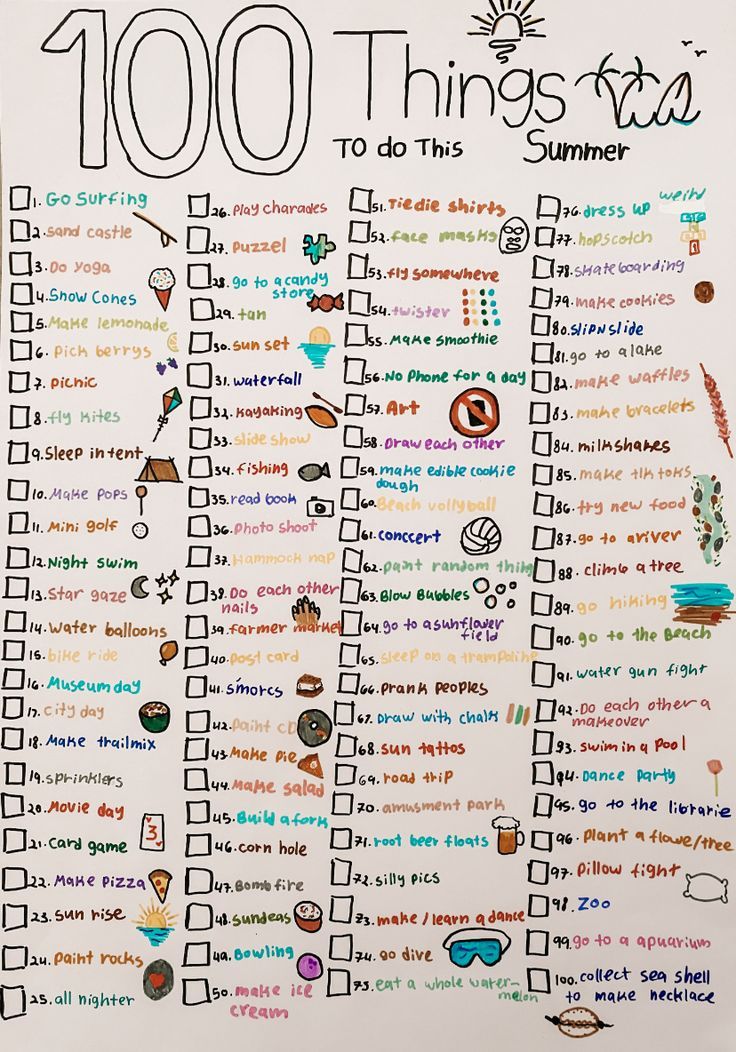 100 Things
TO do This Summer
1. Go Surfing
2. sand castle
3. Do yoga
4. Snow Cones
5. Make lemonade
6. Pick berrys
7. picnic
8. fly kites
9. Sleep in tent
10. Make Pops
11. Mini golf
12. Night swim
13. Star gaze
14. Water balloons
15. bike ride
16. Museum day
17. City day
18. Make trailmix
19. sprinklers
20. Movie day
21. Card game
3
22. Make Pizza
23. sun rise
24. paint rocks
25. all nighter
26. Play charades
27. Puzzel
28. go to a candy
store
29. tan
30. sun set
31. waterfall
32. kayaking
33. slide show
34. fishing
35. read book
36. Photo shoot
37. Hammock nap
38. Do each other
nails
39. farmer market
40. post card
41. s'mores
42. Paint CD
43. Make Pie
44. Make salad
45. Build a fork
46. corn hole
47. Bomb fire
48. sundeas
49. Bowling
50. make ice
cream
51. Tiedie shirts
52. face masks
53. fly somewhere
54. twister
55. Make smoothie
56. No Phone for a day
57. Art
58. Draw each other
59. make edible cookie
dough
60. Beach vollyball
61. conccert
62. paint random thing
63. Blow Bubbles
64. go to a sunflower
field
65. sleep on a trampoline
66. Prank peoples
67. Draw with chalk
68. sun tattos
69. road trip
70. amusment park
71. root beer floats
72. silly pics
73. make/learn a dance
74. go dive
75. eat a whole water-
melon
76. dress up weird
77. hopscotch
1
78. skateboarding
79. make cookies
80. slip n slide
81. go to a lake
82. make waffles
83. make bracelets
84. milkshakes
85. make tik toks
86. try new food
87. go to a river
88. climb a tree
89. go hiking
90. go to the Beach
91. water gun fight
92. Do each other a
makeover
93. swim in a pool
94. Dance Party
95. go to the librarie
96. Plant a flowe/tree
97. Pillow fight
98. Zoo
99. go to a apuarium
100. collect sea shell
to make necklace